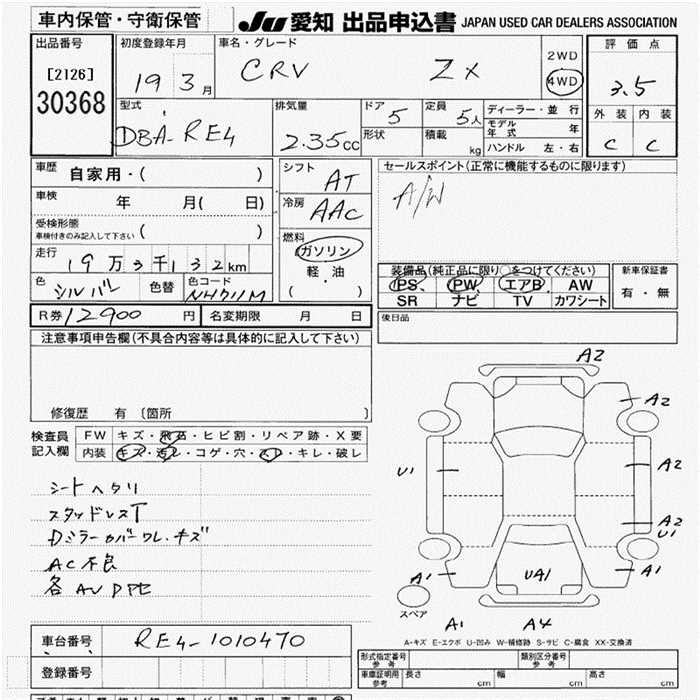 車内保管・守衛保管
JU 愛知 出品申込書 JAPAN USED CAR DEALERS ASSOCIATION
出品番号
[2126]
30368
初度登録年月
19 3月
車名・グレード
CRV ZX
2WD
4WD
評価点
3.5
外装 内装
C C
型式
DBA-RE4
排気量
2.35cc
ドア 5
形状
定員 5人
積載 kg
ディーラー・並行
モデル年式 年
ハンドル 左・右
車歴 自家用・( )
車検 年 月( 日)
受検形態
車検付きのみ記入して下さい ( )
走行 19万3千132km
色 シルバー 色替 色コード NH711M
シフト AT
冷房 AAC
燃料
ガソリン
軽・油
( ・ )
セールスポイント(正常に機能するものに限ります)
A/W
装備品(純正品に限り○をつけてください)
PS PW エアB AW
SR ナビ TV カワシート
新車保証書
有・無
後日品
R券 12900円 名変期限 月 日
注意事項申告欄(不具合内容等は具体的に記入して下さい)
修復歴 有 〔箇所 〕
検査員記入欄
FW キズ・飛石・ヒビ割・リペア跡・X要
内装 キズ・汚レ・コゲ・穴・スレ・キレ・破レ
シートヘタリ
スタッドレスT
Dミラーカバーワレ・キズ
AC不良
各AUP
A2
A2
U1
A2
A2
U1
A1
UA1
A1
スペア
A1
A4
A-キズ E-エクボ U-凹み W-補修跡 S-サビ C-腐食 XX-交換済
車台番号 RE4-1010470
登録番号
形式指定番号 参考
類別区分番号 参考
車庫証明用 参考
長さ cm 幅 cm 高さ cm